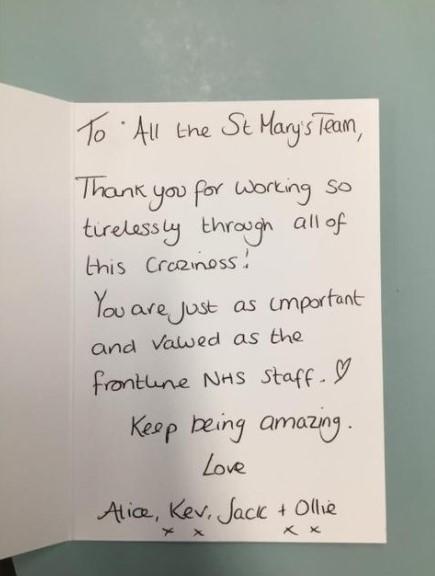 To All the St Mary's Team,
Thank you for working so
tirelessly through all of
this craziness!
You are just as important
and valued as the
frontline NHS staff. ♡
Keep being amazing.
Love
Alice, Kev, Jack + Ollie
x x x x